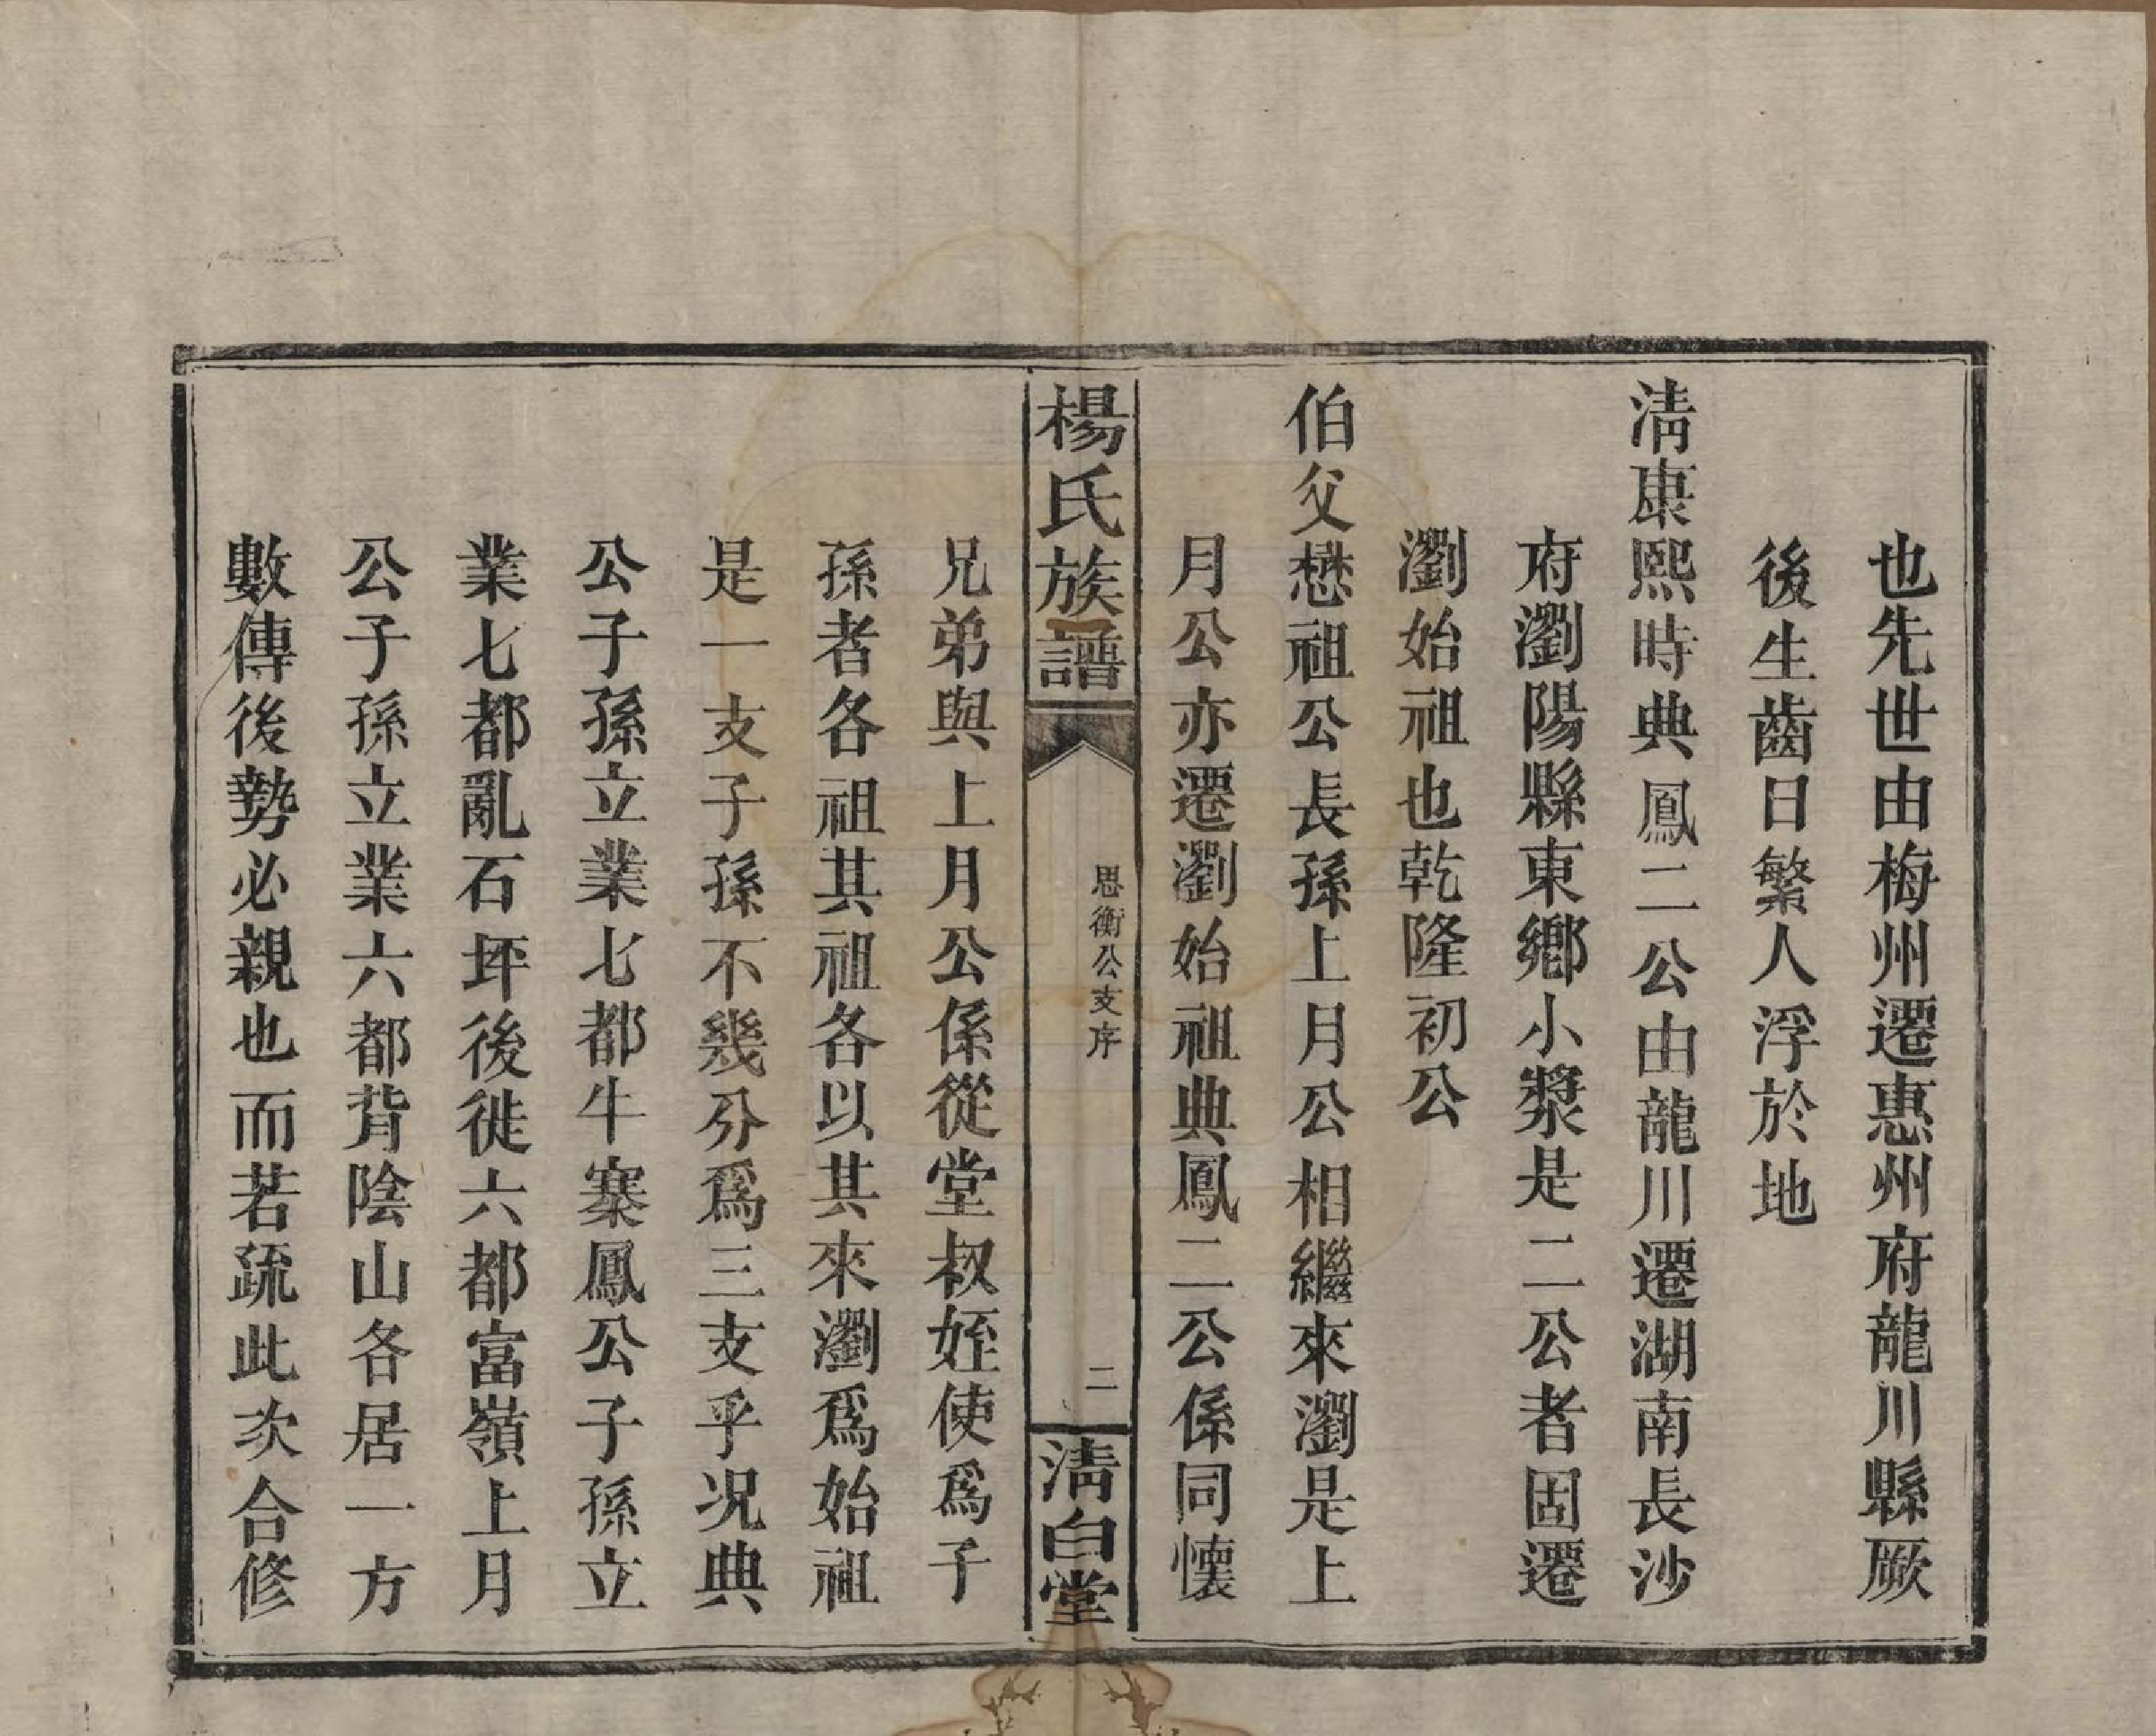 也先世由梅州遷惠州府龍川縣厥
後生齒日繁人浮於地
淸康熙時典鳳二公由龍川遷湖南長沙
府瀏陽縣東鄉小漿是二公者固遷
瀏始祖也乾隆初公
伯父懋祖公長孫上月公相繼來瀏是上
月公亦遷瀏始祖典鳳二公係同懷
楊氏族譜
思衡公支序
二
淸白堂
兄弟與上月公係從堂叔姪使爲子
孫者各祖其祖各以其來瀏爲始祖
是一支子孫不幾分爲三支乎况典
公子孫立業七都牛寨鳳公子孫立
業七都亂石坪後徙六都富嶺上月
公子孫立業六都背陰山各居一方
數傳後勢必親也而若疏此次合修